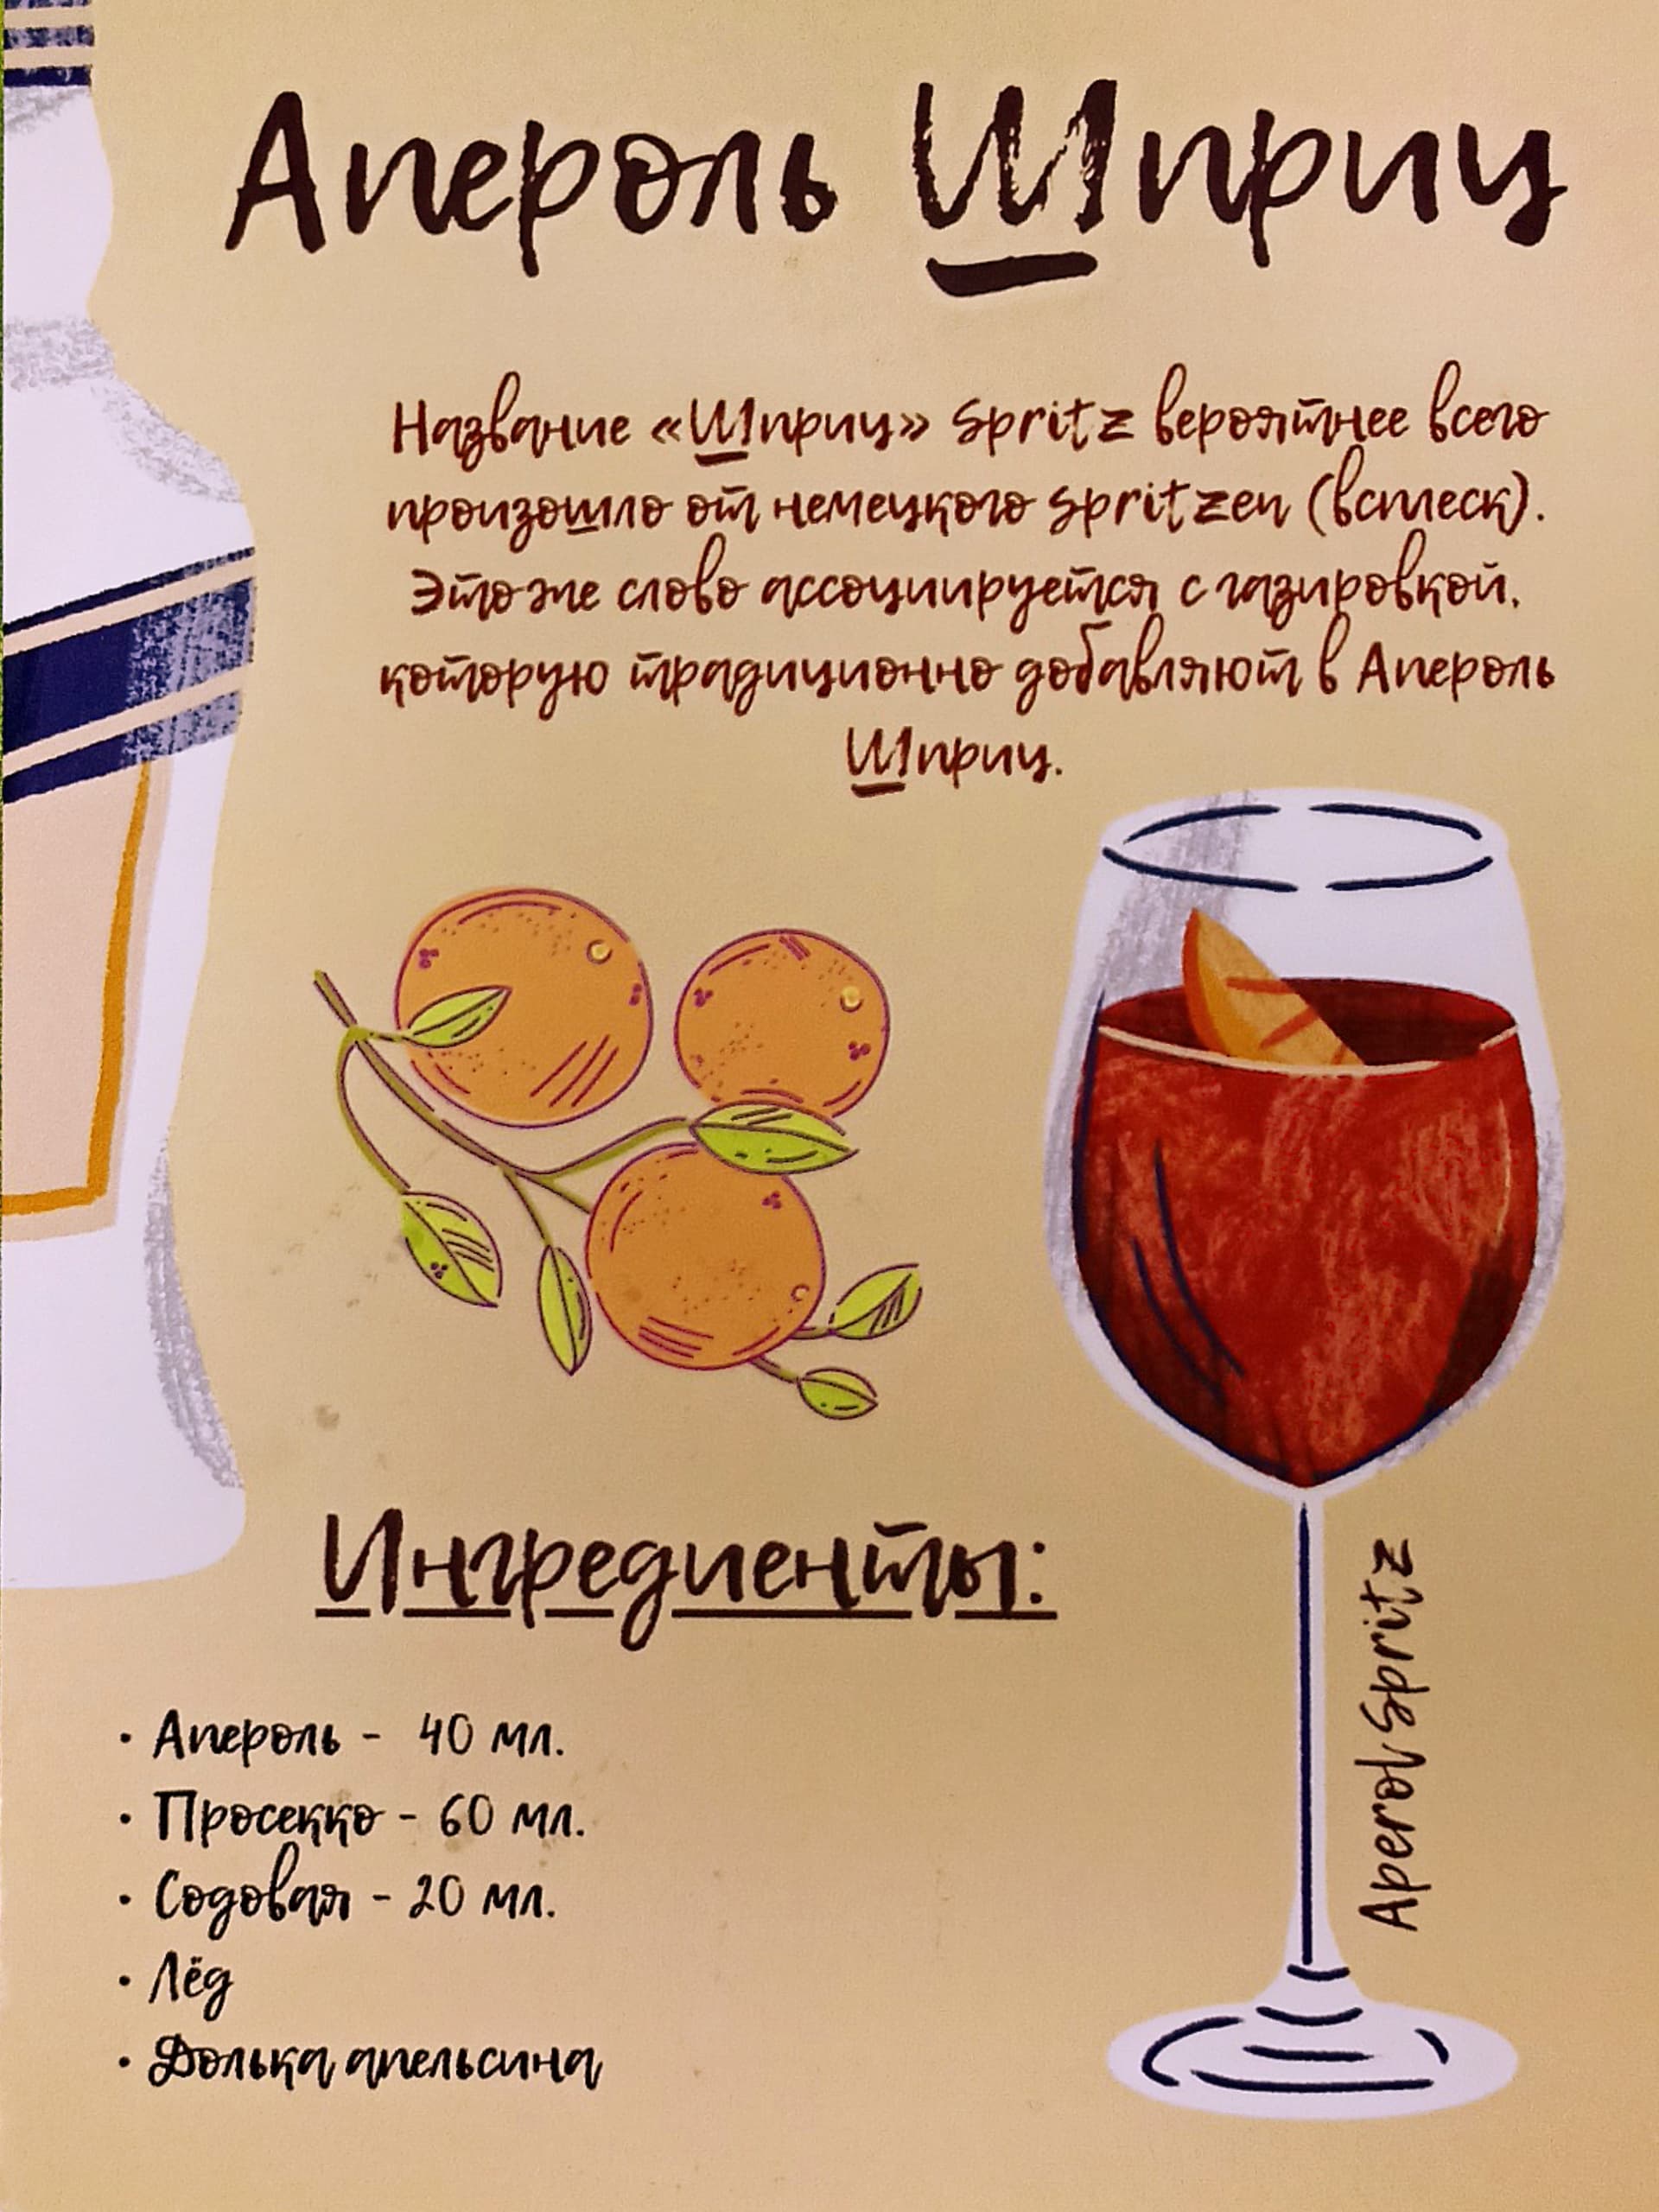 Апероль Шприц
Название «Шприц» Spritz вероятнее всего
произошло от немецкого spritzen (всплеск).
Это же слово ассоциируется с газировкой,
которую традиционно добавляют в Апероль
Шприц.
Ингредиенты:
• Апероль - 40 мл.
• Просекко - 60 мл.
• Содовая - 20 мл.
• Лёд
• Долька апельсина
Aperol Spritz